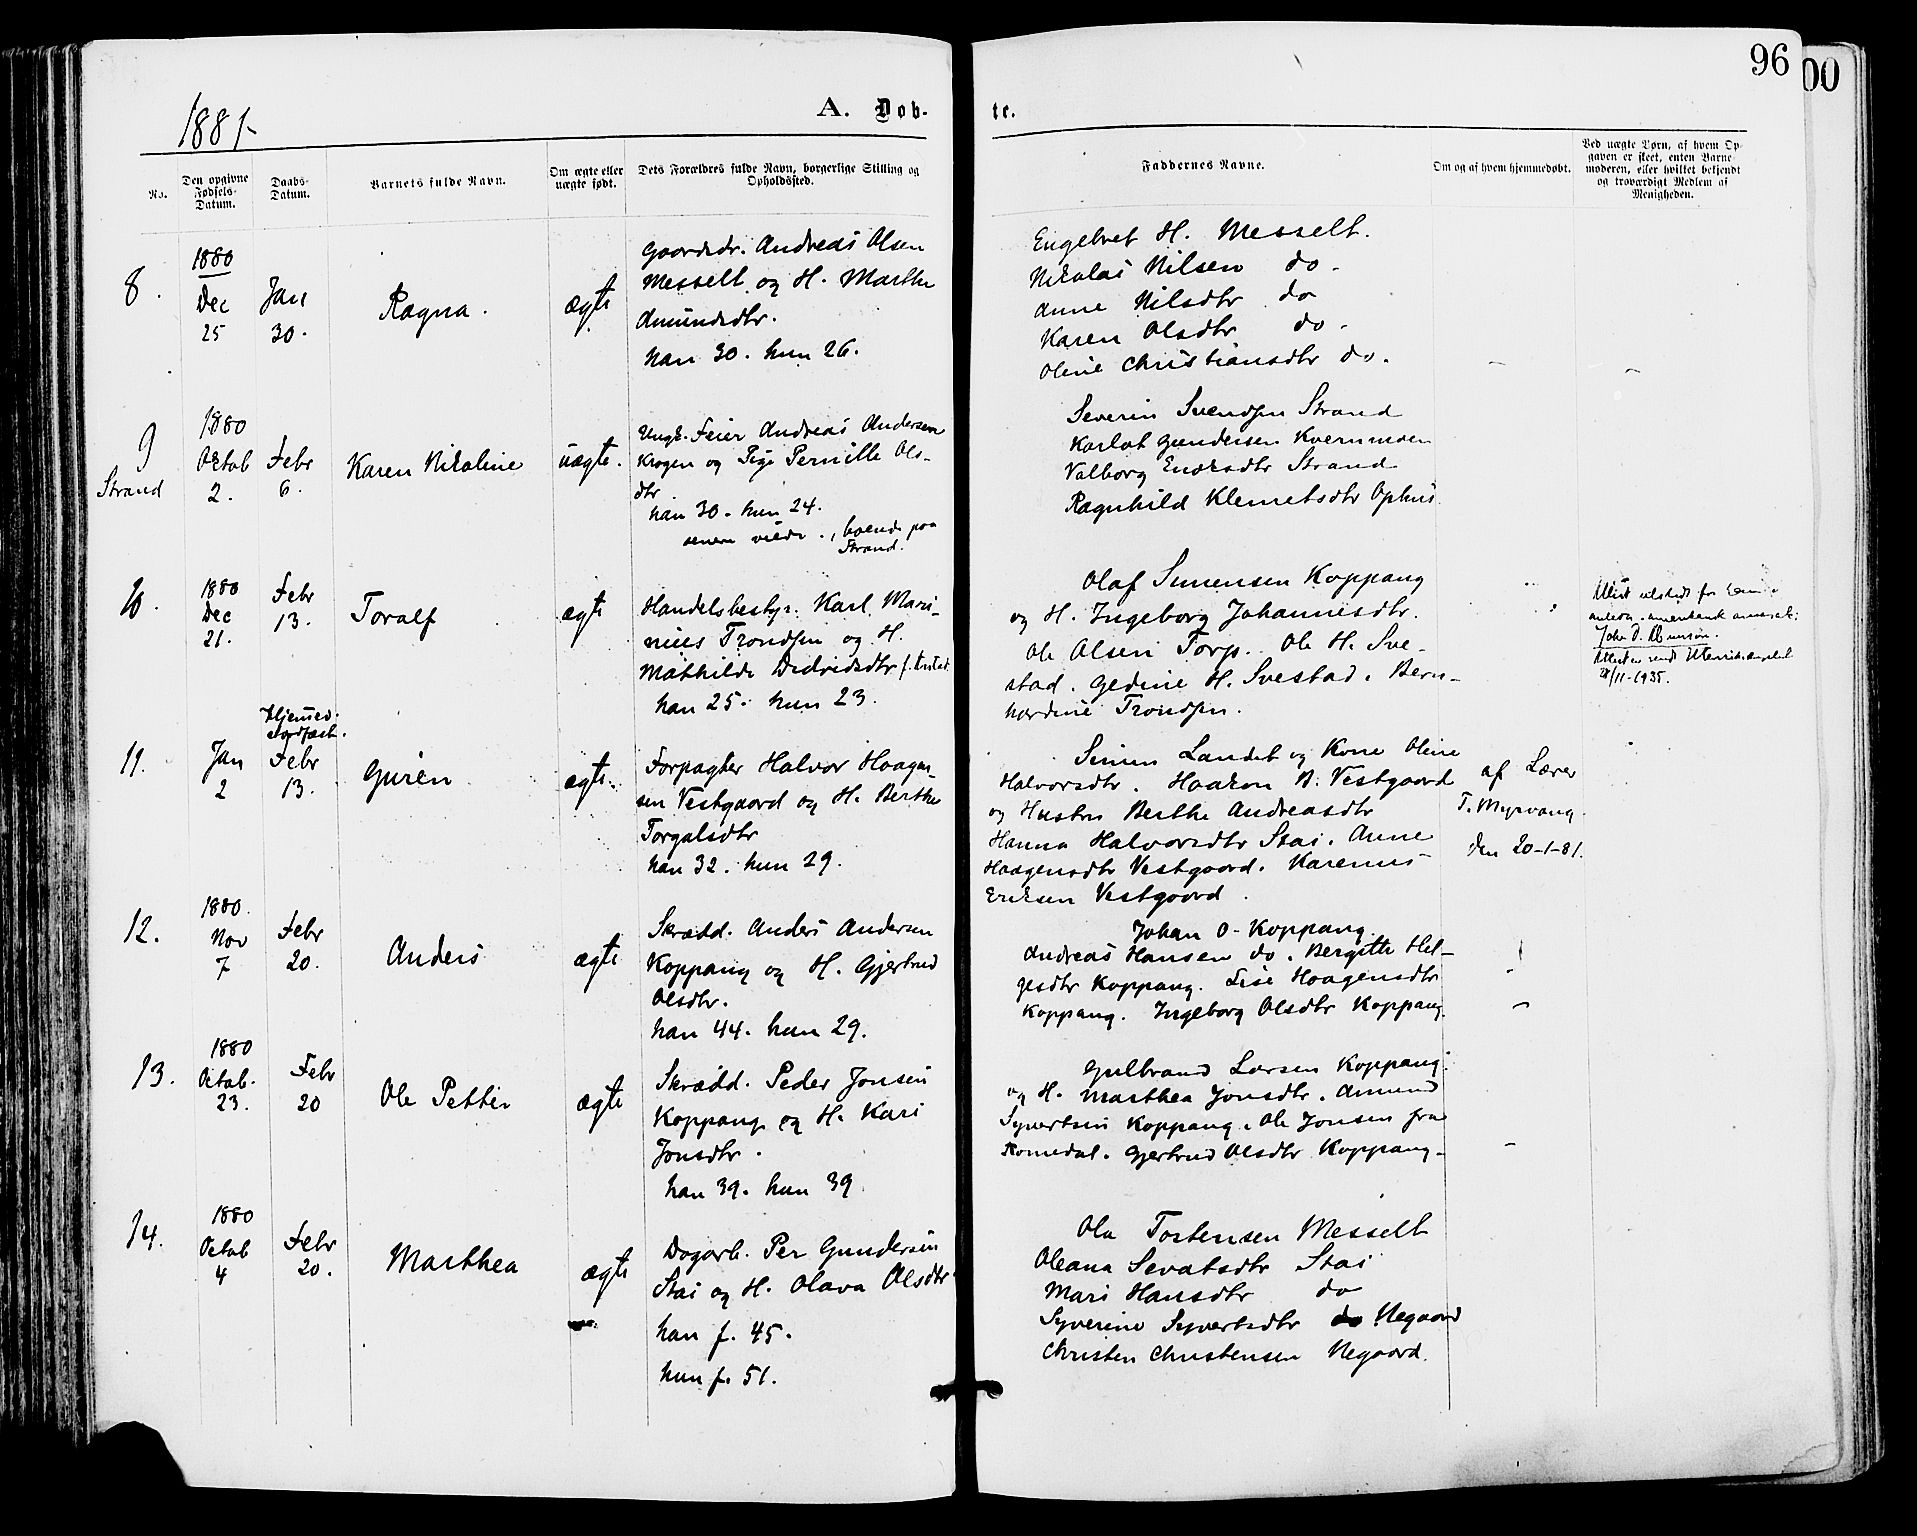 96
00
1881-
A. Døb-
te.
No.
Den opgivne Fødsels-Datum.
Daabs-Datum.
Barnets fulde Navn.
Om ægte eller uægte født.
Dets Forældres fulde Navn, borgerlige Stilling og Opholdssted.
Faddernes Navne.
Om og af hvem hjemmedøbt.
Ved uægte Børn, af hvem Op-
gaven er skeet, enten Barne-
moderen, eller hvilket bekjendt
og troværdigt Medlem af
Menigheden.
8.
1880
Dec
25
Jan
30.
Ragna.
ægte
Gaardbr. Andreas Olsen
Messelt og H. Marthe
Amundsdtr.
han 30. hun 26.
Engebret H. Messelt.
Nikolai Nilsen do.
Anne Nilsdtr do
Karen Olsdtr do.
Oline Christiansdtr do.
9
Strand
1880
Octob
2.
Febr
6.
Karen Nikoline
uægte.
Ungk. Feier Andreas Andersen
Krogen og Pige Pernille Ols-
dtr.
han 30. hun 24.
senere viede., boende paa
Strand.
Severin Svendsen Strand
Karlot Gundersen Kvernmoen
Valborg Endresdtr Strand
Ragnhild Klemetsdtr Ophus
10.
1880
Dec
21.
Febr
13.
Toralf
ægte
Handelsbestyr. Karl Mari-
nius Trondsen og H.
Mathilde Didriksdtr
han 25. hun 23.
Olaf Simensen Koppang
og H. Ingeborg Johannesdtr.
Ole Olsen Torp. Ole H. Sve-
stad. Gedine H. Svestad. Bern-
hardine Trondsen.
28/11-1935.
11.
Jan
2
Hjemmed.
stadfæst.
Febr
13.
Guren
ægte.
Forpagter Halvor Haagen-
sen Vestgaard og H. Berthe
Torgalsdtr
han 32. hun 29.
Simen Landet og Kone Oline
Halvorsdtr. Haakon B. Vestgaard
og Hustru Berthe Andreasdtr
Hanna Halvorsdtr Stai. Anne
Haagensdtr Vestgaard. Karenus
Eriksen Vestgaard.
af Lærer
T. Myrvang.
den 20-1-81.
12.
1880.
Nov
7
Febr
20.
Anders
ægte
Skrædd. Anders Andersen
Koppang og H. Gjertrud
Olsdtr.
han 44. hun 29.
Johan O. Koppang.
Andreas Hansen do. Bergitte Hel-
gesdtr Koppang. Lise Haagensdtr
Koppang. Ingeborg Olsdtr Koppang.
13.
1880
Octob.
23.
Febr
20
Ole Petter
ægte
Skrædd. Peder Jonsen
Koppang og H. Kari
Jonsdtr.
han 39. hun 39
Gulbrand Larsen Koppang
og H. Marthea Jonsdtr. Amund
Syvertsen Koppang. Ole Jonsen fra
Romedal. Gjertrud Olsdtr Koppang.
14.
1880
Octob
4
Febr
20.
Marthea
ægte
Dagarb. Per Gundersen
Stai og H. Olava Olsdtr
han f. 45.
hun f. 51.
Ola Tostensen Messelt
Oleana Sevatsdtr Stai
Mari Hansdtr do
Syverine Syvertsdtr do Negaard
Christen Christensen Negaard.